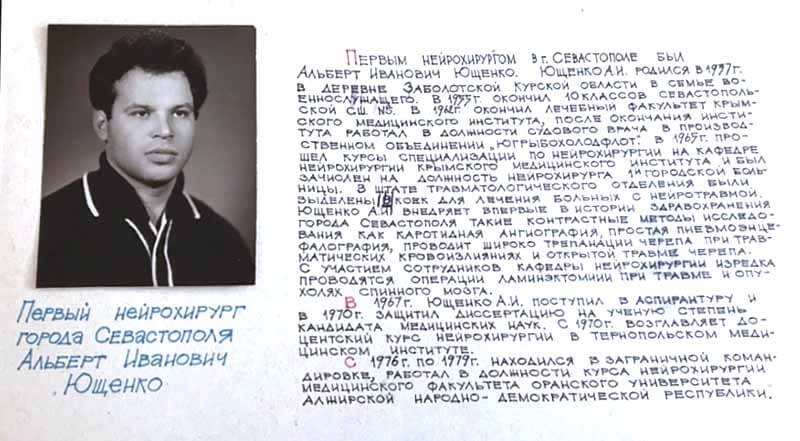 Первым нейрохиругом в г. Севастополе был
Альберт Иванович Ющенко. Ющенко А.И. родился в 1937г.
в деревне Заболотской Курской области в семье во-
еннослужащего. В 1955г. окончил 10 классов севастополь-
ской с.ш. №5. В 1962г. окончил лечебный факультет Крым-
ского медицинского института, после окончания инсти-
тута работал в должности судового врача в производ-
ственном объединении "Югрыбхолодфлот". В 1965г. про-
шел курсы специализации по нейрохирургии на кафедре
нейрохирургии Крымского медицинского института и был
зачислен на должность нейрохирурга 1й городской боль-
ницы. В штате травматологического отделения были
выделены коек для лечения больных с нейротравмой.
Ющенко А.И. внедряет впервые в истории здравохранения
города Севастополя такие контрастные методы исследо-
вания как каротидная ангиография, простая пневмоэнце-
фалография, проводит широко трепанации черепа при трав-
матических кровоизлияниях и открытой травме черепа.
С участием сотрудников кафедры нейрохирургии изредка
проводятся операции ламинэктомиии при травме и опу-
холях спинного мозга.
В 1967г. Ющенко А.И. поступил в аспирантуру и
в 1970г. защитил диссертацию на ученую степень
кандидата медицинских наук. С 1970г. возглавляет до-
центский курс нейрохирургии в Тернопольском меди-
цинском институте.
С 1976г. по 1979г. находился в заграничной коман-
дировке, работал в должности курса нейрохирургии
медицинского факультета Оранского университета
Алжирской Народно-Демократической Республики.
Первый нейрохирург
города Севастополя
Альберт Иванович
Ющенко